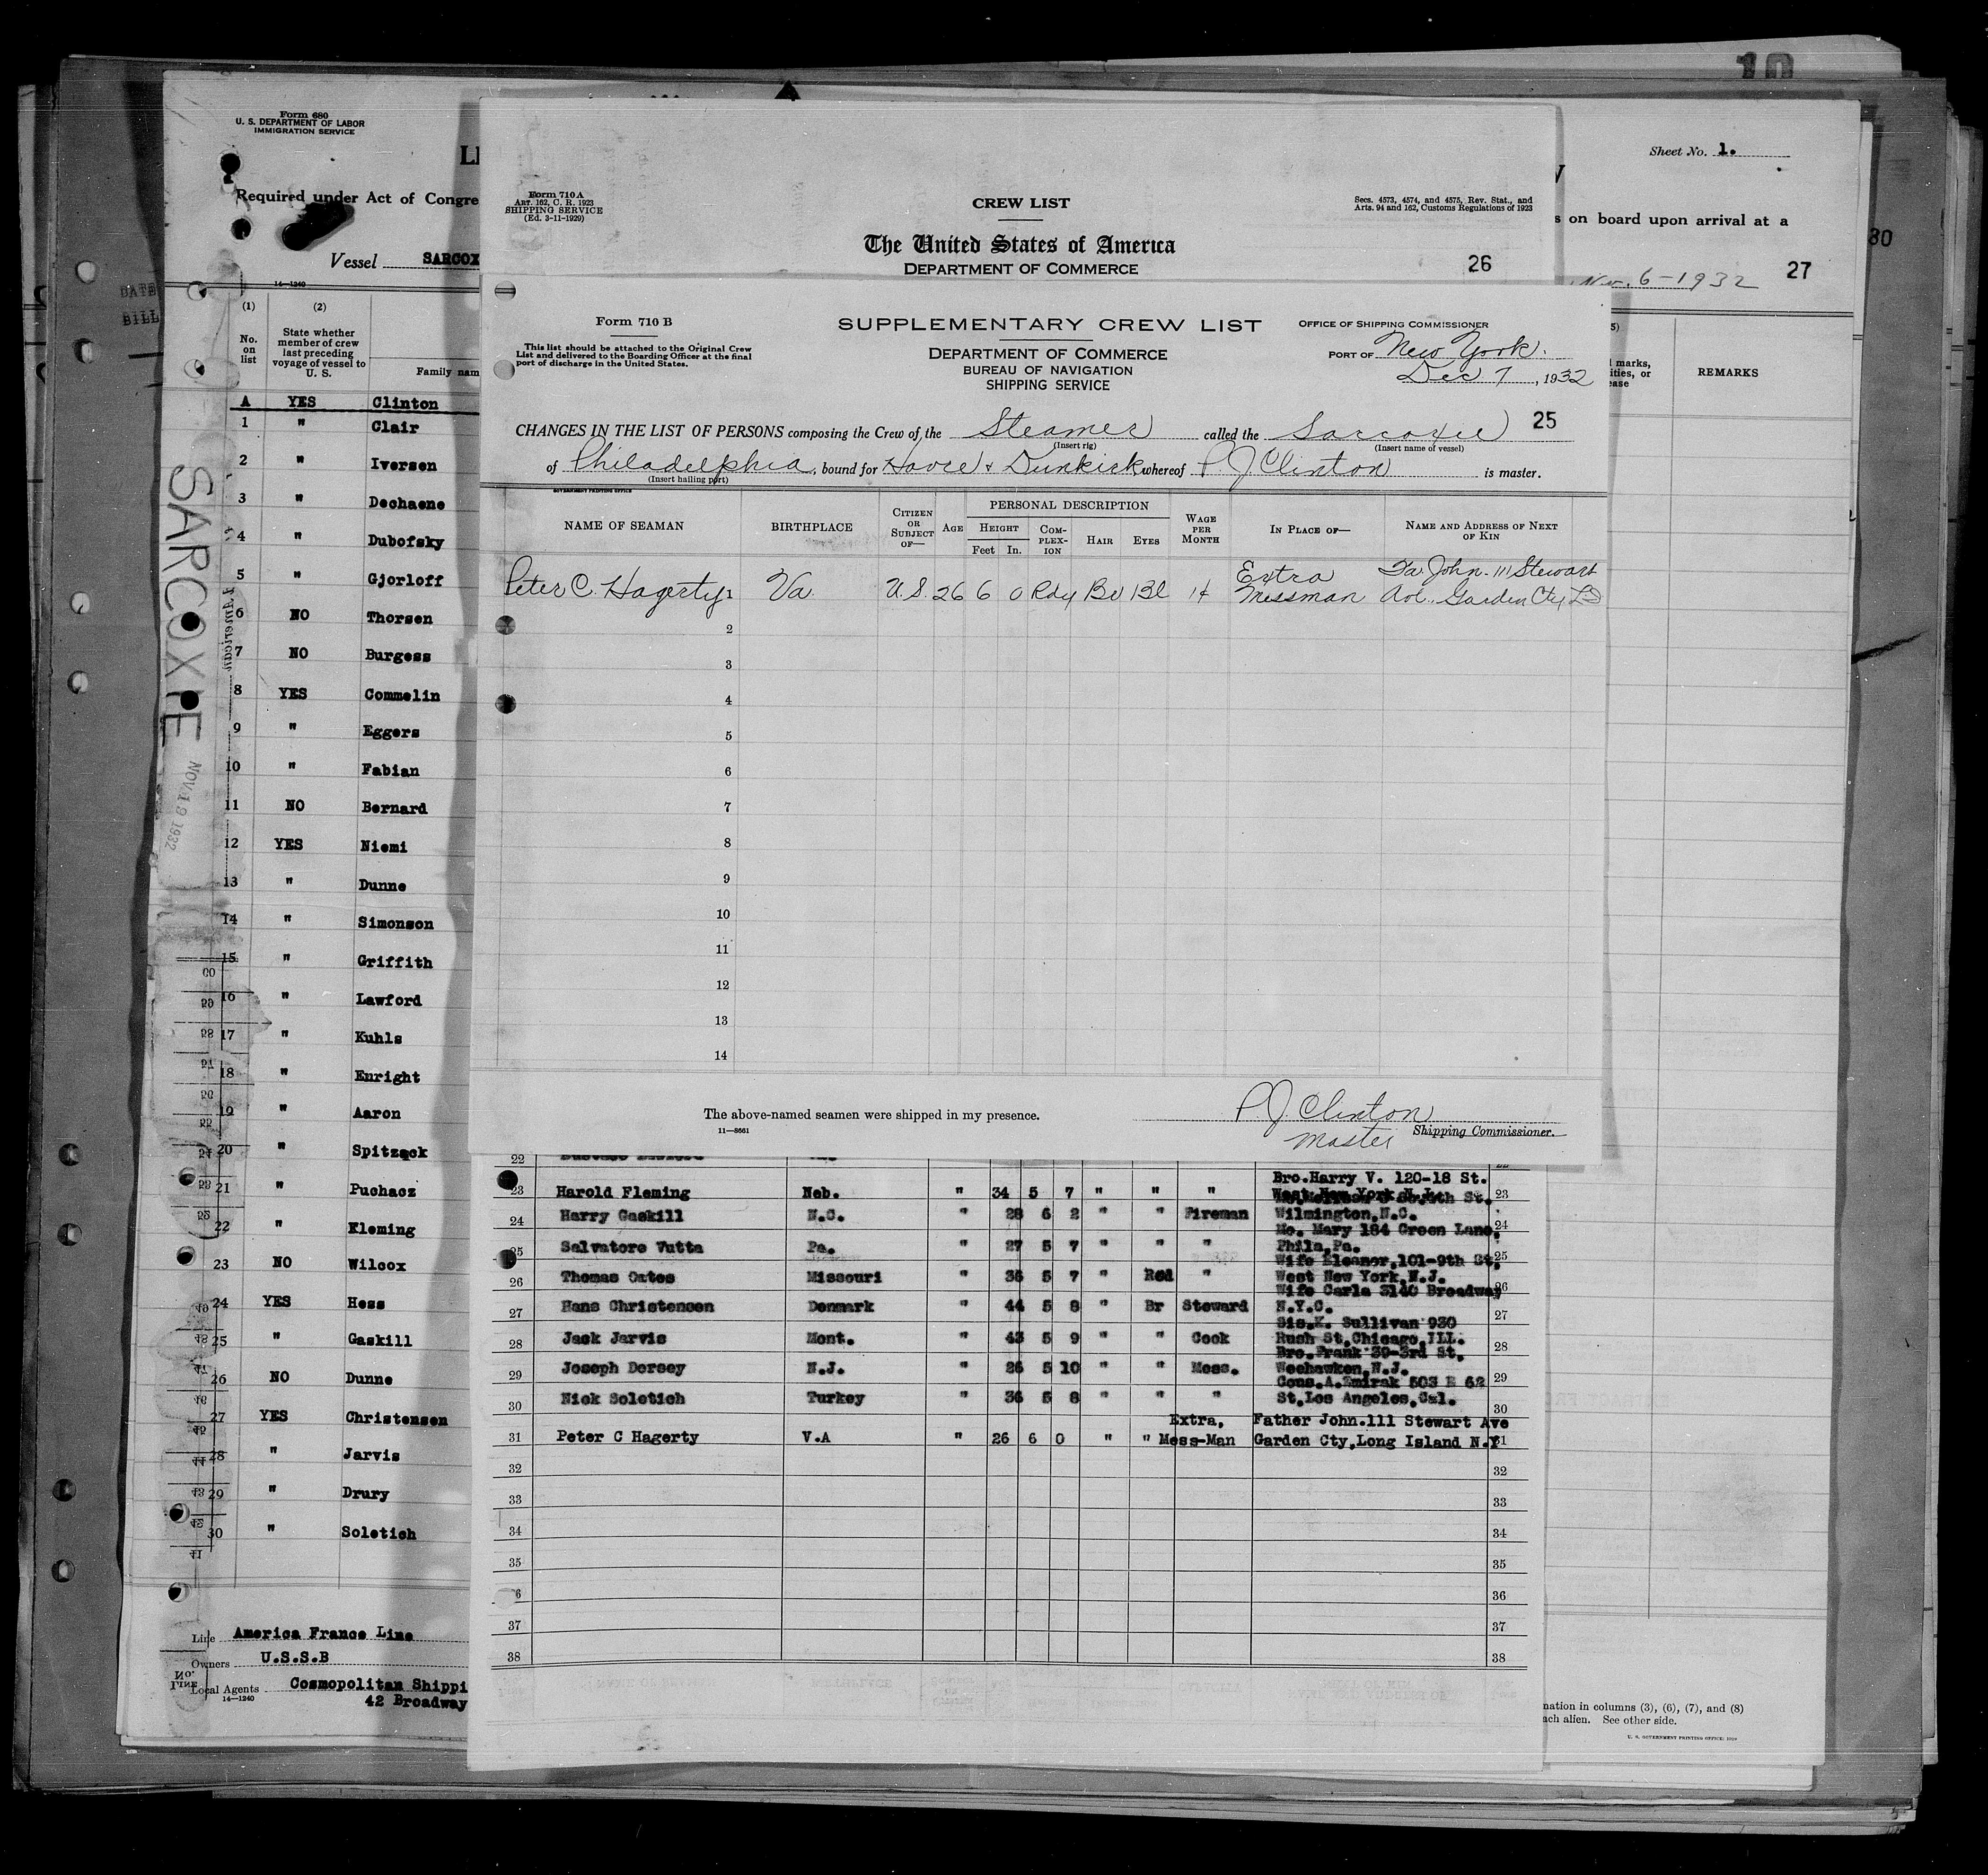 10
Form 680
U. S. DEPARTMENT OF LABOR
IMMIGRATION SERVICE
Required under Act of Congre
Vessel SARCOX
14—1240
(1) (2)
No. on list
State whether member of crew last preceding voyage of vessel to U. S.
Family nam
A YES Clinton
1 " Clair
2 " Iversen
3 " Dechaene
4 " Dubofsky
5 " Gjorloff
6 NO Thorsen
7 NO Burgess
8 YES Commelin
9 " Eggers
10 " Fabian
11 NO Bernard
12 YES Niemi
13 " Dunne
14 " Simonson
15 " Griffith
16 " Lawford
17 " Kuhls
18 " Enright
19 " Aaron
20 " Spitzack
21 " Puchacz
22 " Fleming
23 NO Wilcox
24 YES Hess
25 " Gaskill
26 NO Dunne
27 YES Christensen
28 " Jarvis
29 " Drury
30 " Soletich
Line America France Line
Owners U.S.S.B
Local Agents Cosmopolitan Shippi
14—1240
42 Broadway
SARCOXIE
NOV 19 1932
American
DATE
BILL
Sheet No. 1.
s on board upon arrival at a
Nov. 6-1932 27
30
marks,
ities, or
ease
REMARKS
Form 710 A
ART. 162, C. R. 1923
SHIPPING SERVICE
(Ed. 3-11-1929)
CREW LIST
Secs. 4573, 4574, and 4575, Rev. Stat., and
Arts. 94 and 162, Customs Regulations of 1923
The United States of America
DEPARTMENT OF COMMERCE
26
Form 710 B
This list should be attached to the Original Crew
List and delivered to the Boarding Officer at the final
port of discharge in the United States.
SUPPLEMENTARY CREW LIST
DEPARTMENT OF COMMERCE
BUREAU OF NAVIGATION
SHIPPING SERVICE
OFFICE OF SHIPPING COMMISSIONER
PORT OF New York.
Dec 7, 1932
25
CHANGES IN THE LIST OF PERSONS composing the Crew of the Steamer called the Sarcoxie
(Insert rig) (Insert name of vessel)
of Philadelphia, bound for Havre & Dunkirk whereof P. J Clinton is master.
(Insert hailing port)
GOVERNMENT PRINTING OFFICE
NAME OF SEAMAN BIRTHPLACE CITIZEN OR SUBJECT OF— AGE PERSONAL DESCRIPTION HEIGHT Feet In. COMPLEX-ION HAIR EYES WAGE PER MONTH IN PLACE OF— NAME AND ADDRESS OF NEXT OF KIN
Peter C. Hagerty 1 Va. U.S. 26 6 0 Rdy Br Bl Extra Messman Fa. John. 111 Stewart Ave. Garden Cty
2
3
4
5
6
7
8
9
10
11
12
13
14
The above-named seamen were shipped in my presence.
11—8661
P. J. Clinton
Master Shipping Commissioner.
22
Bro.Harry V. 120-18 St.
23 Harold Fleming Neb. " 34 5 7 " " " West New York N.J. 23
24 Harry Gaskill N.C. " 28 6 2 " " Fireman Wilmington,N.C.
Mo. Mary 184 Green Lane, 24
25 Salvatore Vutta Pa. " 27 5 7 " " " Phila,Pa.
Wife Eleanor,101-9th St, 25
26 Thomas Oates Missouri " 36 5 7 " Red " West New York,N.J.
Wife Carla 3140 Broadway 26
27 Hans Christensen Denmark " 44 5 8 " Br Steward N.Y.C.
Sis.K. Sullivan 930 27
28 Jack Jarvis Mont. " 43 5 9 " " Cook Rush St,Chicago,ILL.
Bro.Frank 39-3rd St, 28
29 Joseph Dorsey N.J. " 26 5 10 " " Mess. Weehawken,N.J.
Cous.A.Emirak 503 E 62 29
30 Nick Soletich Turkey " 36 5 8 " " " St,Los Angeles,Cal. 30
Extra, Father John.111 Stewart Ave
31 Peter C Hagerty V.A " 26 6 0 " " Mess-Man Garden Cty,Long Island N.Y 31
32 32
33 33
34 34
35 35
36 36
37 37
38 38
mation in columns (3), (6), (7), and (8)
ach alien. See other side.
U. S. GOVERNMENT PRINTING OFFICE: 1929